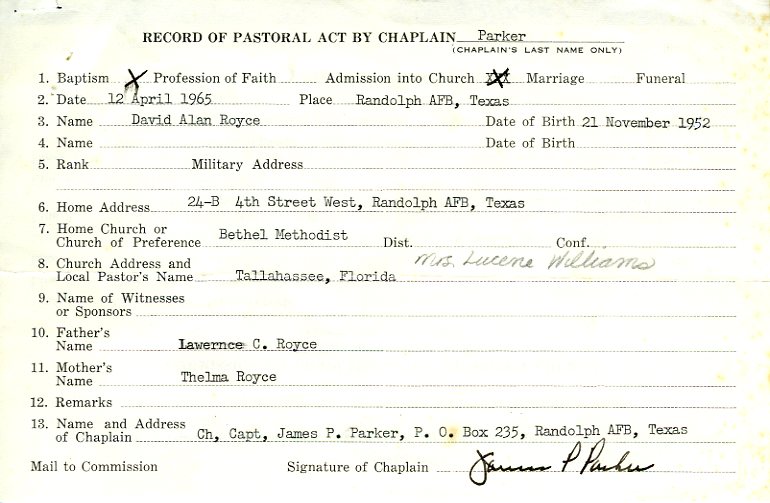 RECORD OF PASTORAL ACT BY CHAPLAIN Parker
(CHAPLAIN'S LAST NAME ONLY)
1. Baptism X Profession of Faith Admission into Church XXX Marriage Funeral
2. Date 12 April 1965 Place Randolph AFB, Texas
3. Name David Alan Royce Date of Birth 21 November 1952
4. Name Date of Birth
5. Rank Military Address
6. Home Address 24-B 4th Street West, Randolph AFB, Texas
7. Home Church or
Church of Preference Bethel Methodist Dist. Conf.
Mrs. Lucene Williams
8. Church Address and
Local Pastor's Name Tallahassee, Florida
9. Name of Witnesses
or Sponsors
10. Father's
Name Lawernce C. Royce
11. Mother's
Name Thelma Royce
12. Remarks
13. Name and Address
of Chaplain Ch, Capt, James P. Parker, P. O. Box 235, Randolph AFB, Texas
Mail to Commission Signature of Chaplain James P Parker